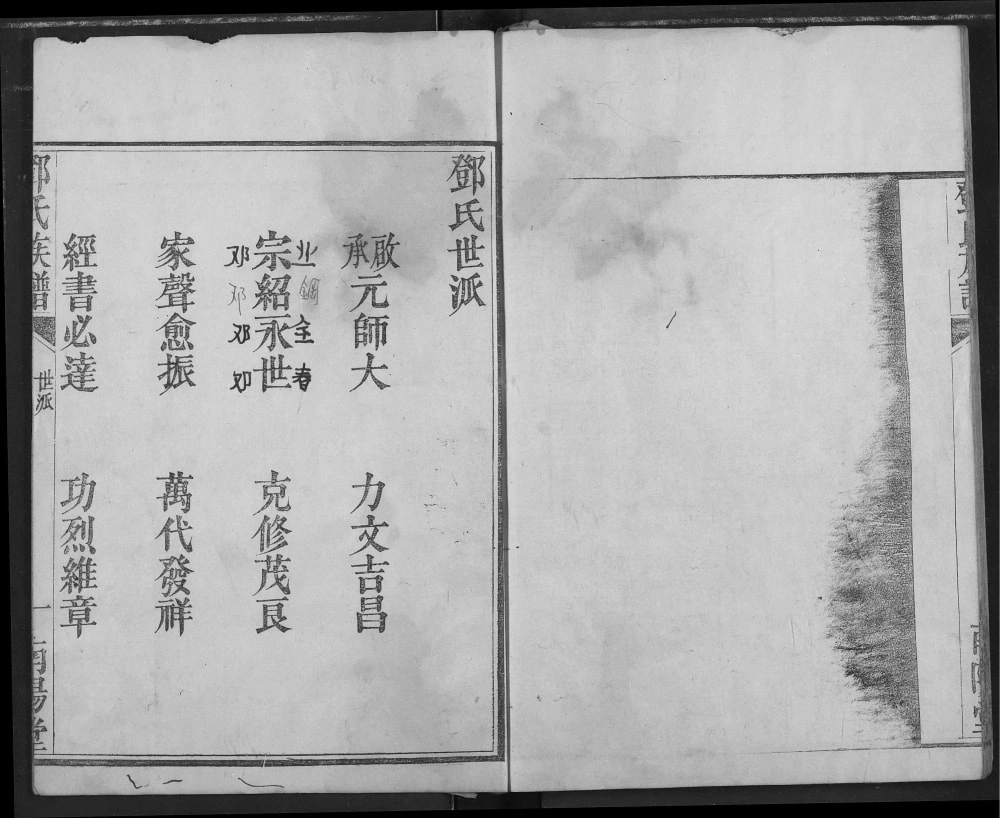 鄧氏世派
啟承元師大
力文吉昌
宗紹永世
邓邓邓邓
克修茂良
家聲愈振
萬代發祥
經書必達
功烈維章
鄧氏族譜
世派
一
南陽堂